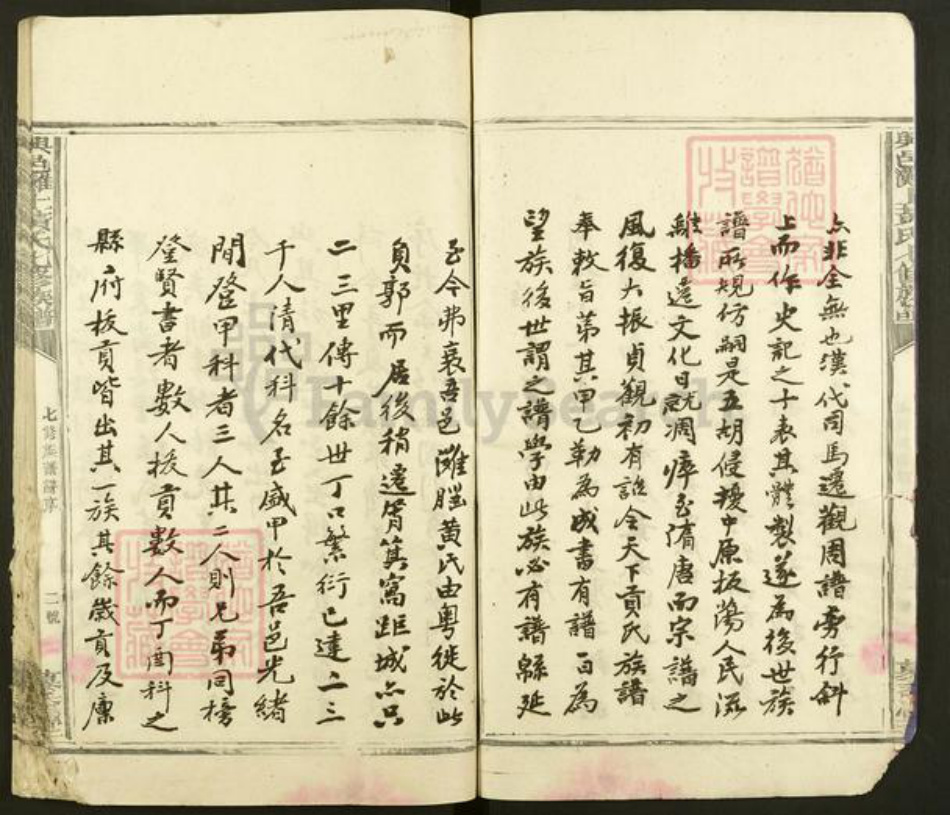 亦非全無也漢代司馬遷觀周譜旁行斜
上而作史記之十表其體製遂為後世族
譜所規仿嗣是五胡侵擾中原板蕩人民流
離播遷文化日就凋瘁至隋唐而宗譜之
風復大振貞觀初有詔令天下貢氏族譜
奉敕旨第其甲乙勒為成書有譜一百為
望族後世謂之譜學由此族必有譜緜延
至今弗衰吾邑灘腦黃氏由粵徙於此
負郭而居後稍遷筲箕窩距城亦只
二三里傳十餘世丁口繁衍已達二三
千人清代科名至盛甲於吾邑光緒
間登甲科者三人其二人則兄弟同榜
登賢書者數人拔貢數人而丁酉科之
縣府拔貢皆出其一族其餘歲貢及廩
七修族譜譜序
二號
FamilySearch